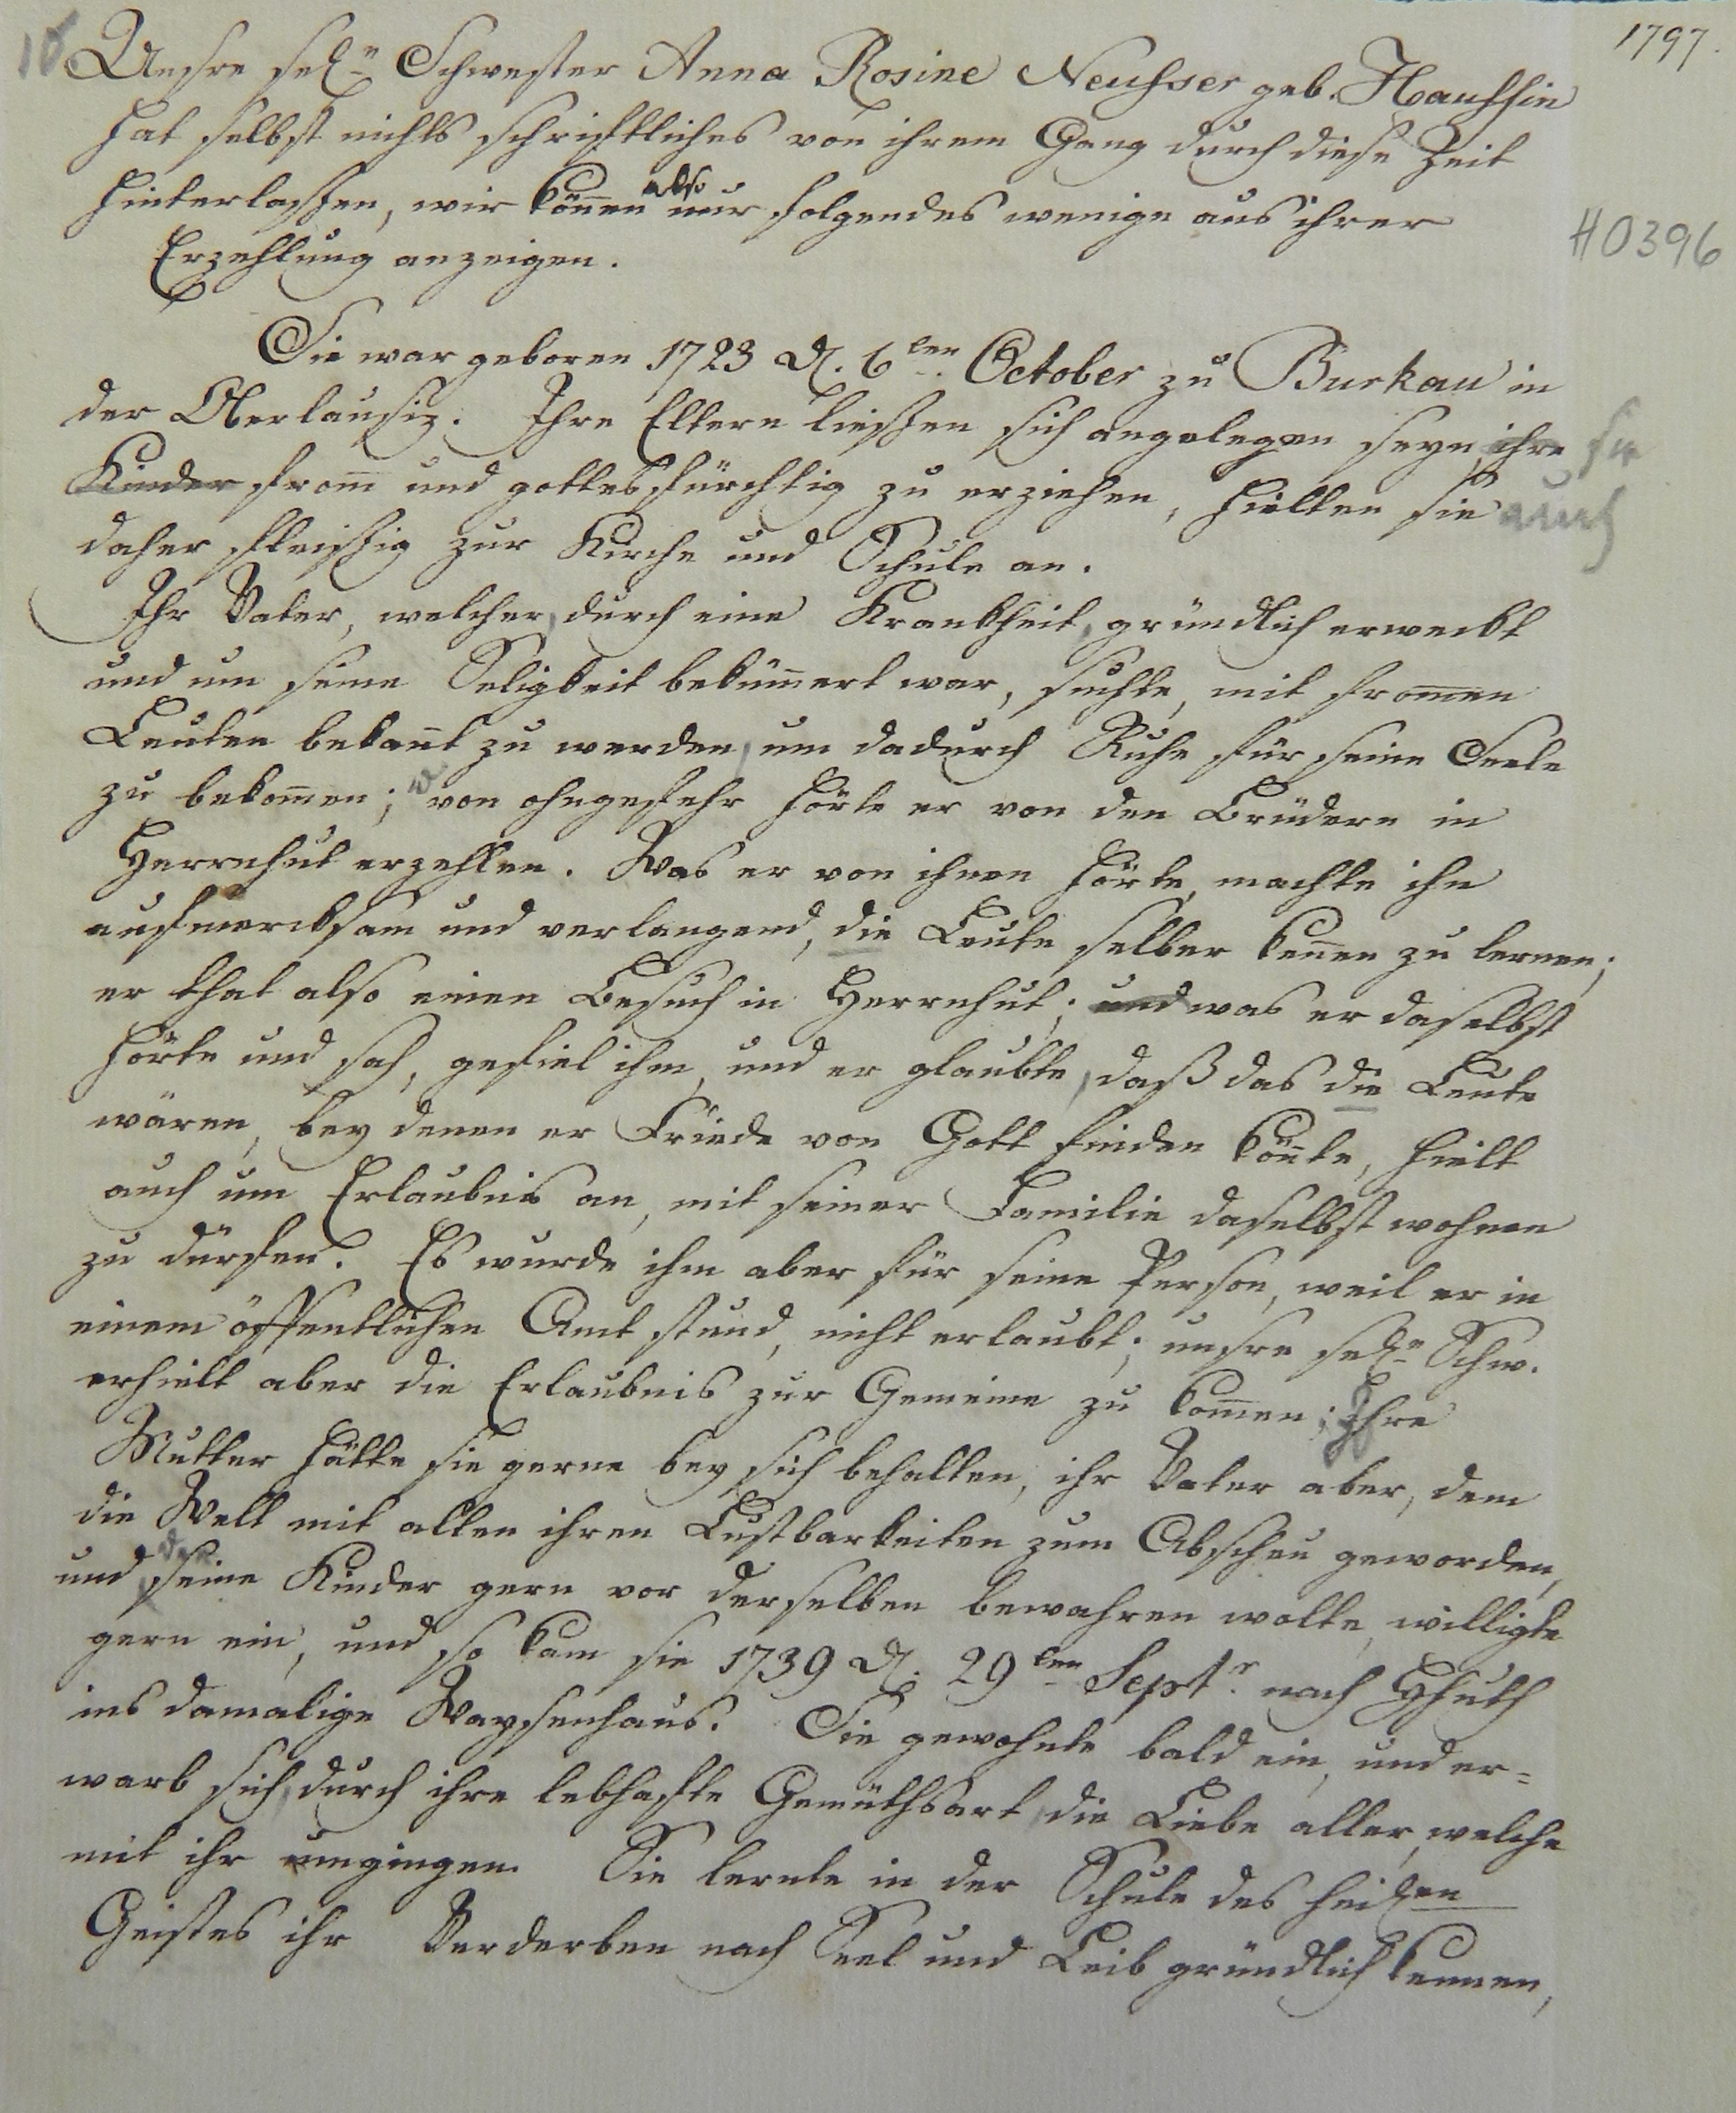 1797.
10
Unsre sel<sup>n</sup> Schwester Anna Rosine Neusser geb. Haussin
hat selbst nichts schriftliches von ihrem Gang durch diese Zeit
hinterlassen, wir können also nur folgendes wenige aus ihrer
Erzehlung anzeigen.
H0396
Sie war geboren 1723 d. 6ten October zu Burkau in
der Oberlausiz. Ihre Eltern liessen sich angelegen seyn, ihre sie
Kinder from̄ und gottesfürchtig zu erziehen, hielten sie auch
daher fleissig zur Kirche und Schule an.
Ihr Vater, welcher, durch eine Krankheit, gründlich erweckt
und um seine Seligkeit beküm̄ert war, suchte, mit from̄en
Leuten bekan̄t zu werden, um dadurch Ruhe für seine Seele
zu bekom̄en; von ohngefehr hörte er von den Brüdern in
Herrnhut erzehlen. Was er von ihnen hörte, machte ihn
aufmercksam und verlangend, die Leute selber ken̄en zu lernen;
er that also einen Besuch in Herrnhut; und was er daselbst
hörte und sah, gefiel ihm, und er glaubte, daß das die Leute
wären, bey denen er Friede von Gott finden kön̄te, hielt
auch um Erlaubnis an, mit seiner Familie daselbst wohnen
zu dürfen. Es wurde ihm aber für seine Person, weil er in
einem öffentlichen Amt stund, nicht erlaubt; unsre sel<sup>n</sup> Schw.
erhielt aber die Erlaubnis zur Gemeine zu kom̄en; Ihre
Mutter hätte sie gerne bey sich behalten, ihr Vater aber, dem
die Welt mit allen ihren Lustbarkeiten zum Abscheu geworden,
und der seine Kinder gern vor derselben bewahren wolte, willigte
gern ein, und so kam sie 1739 d. 29ten Septr. nach Hhuth
ins damalige Waysenhaus. Sie gewohnte bald ein, und er=
warb sich, durch ihre lebhafte Gemüthsart, die Liebe aller, welche
mit ihr umgingen. Sie lernte in der Schule des heilen
Geistes ihr Verderben nach Seel und Leib gründlich kennen,